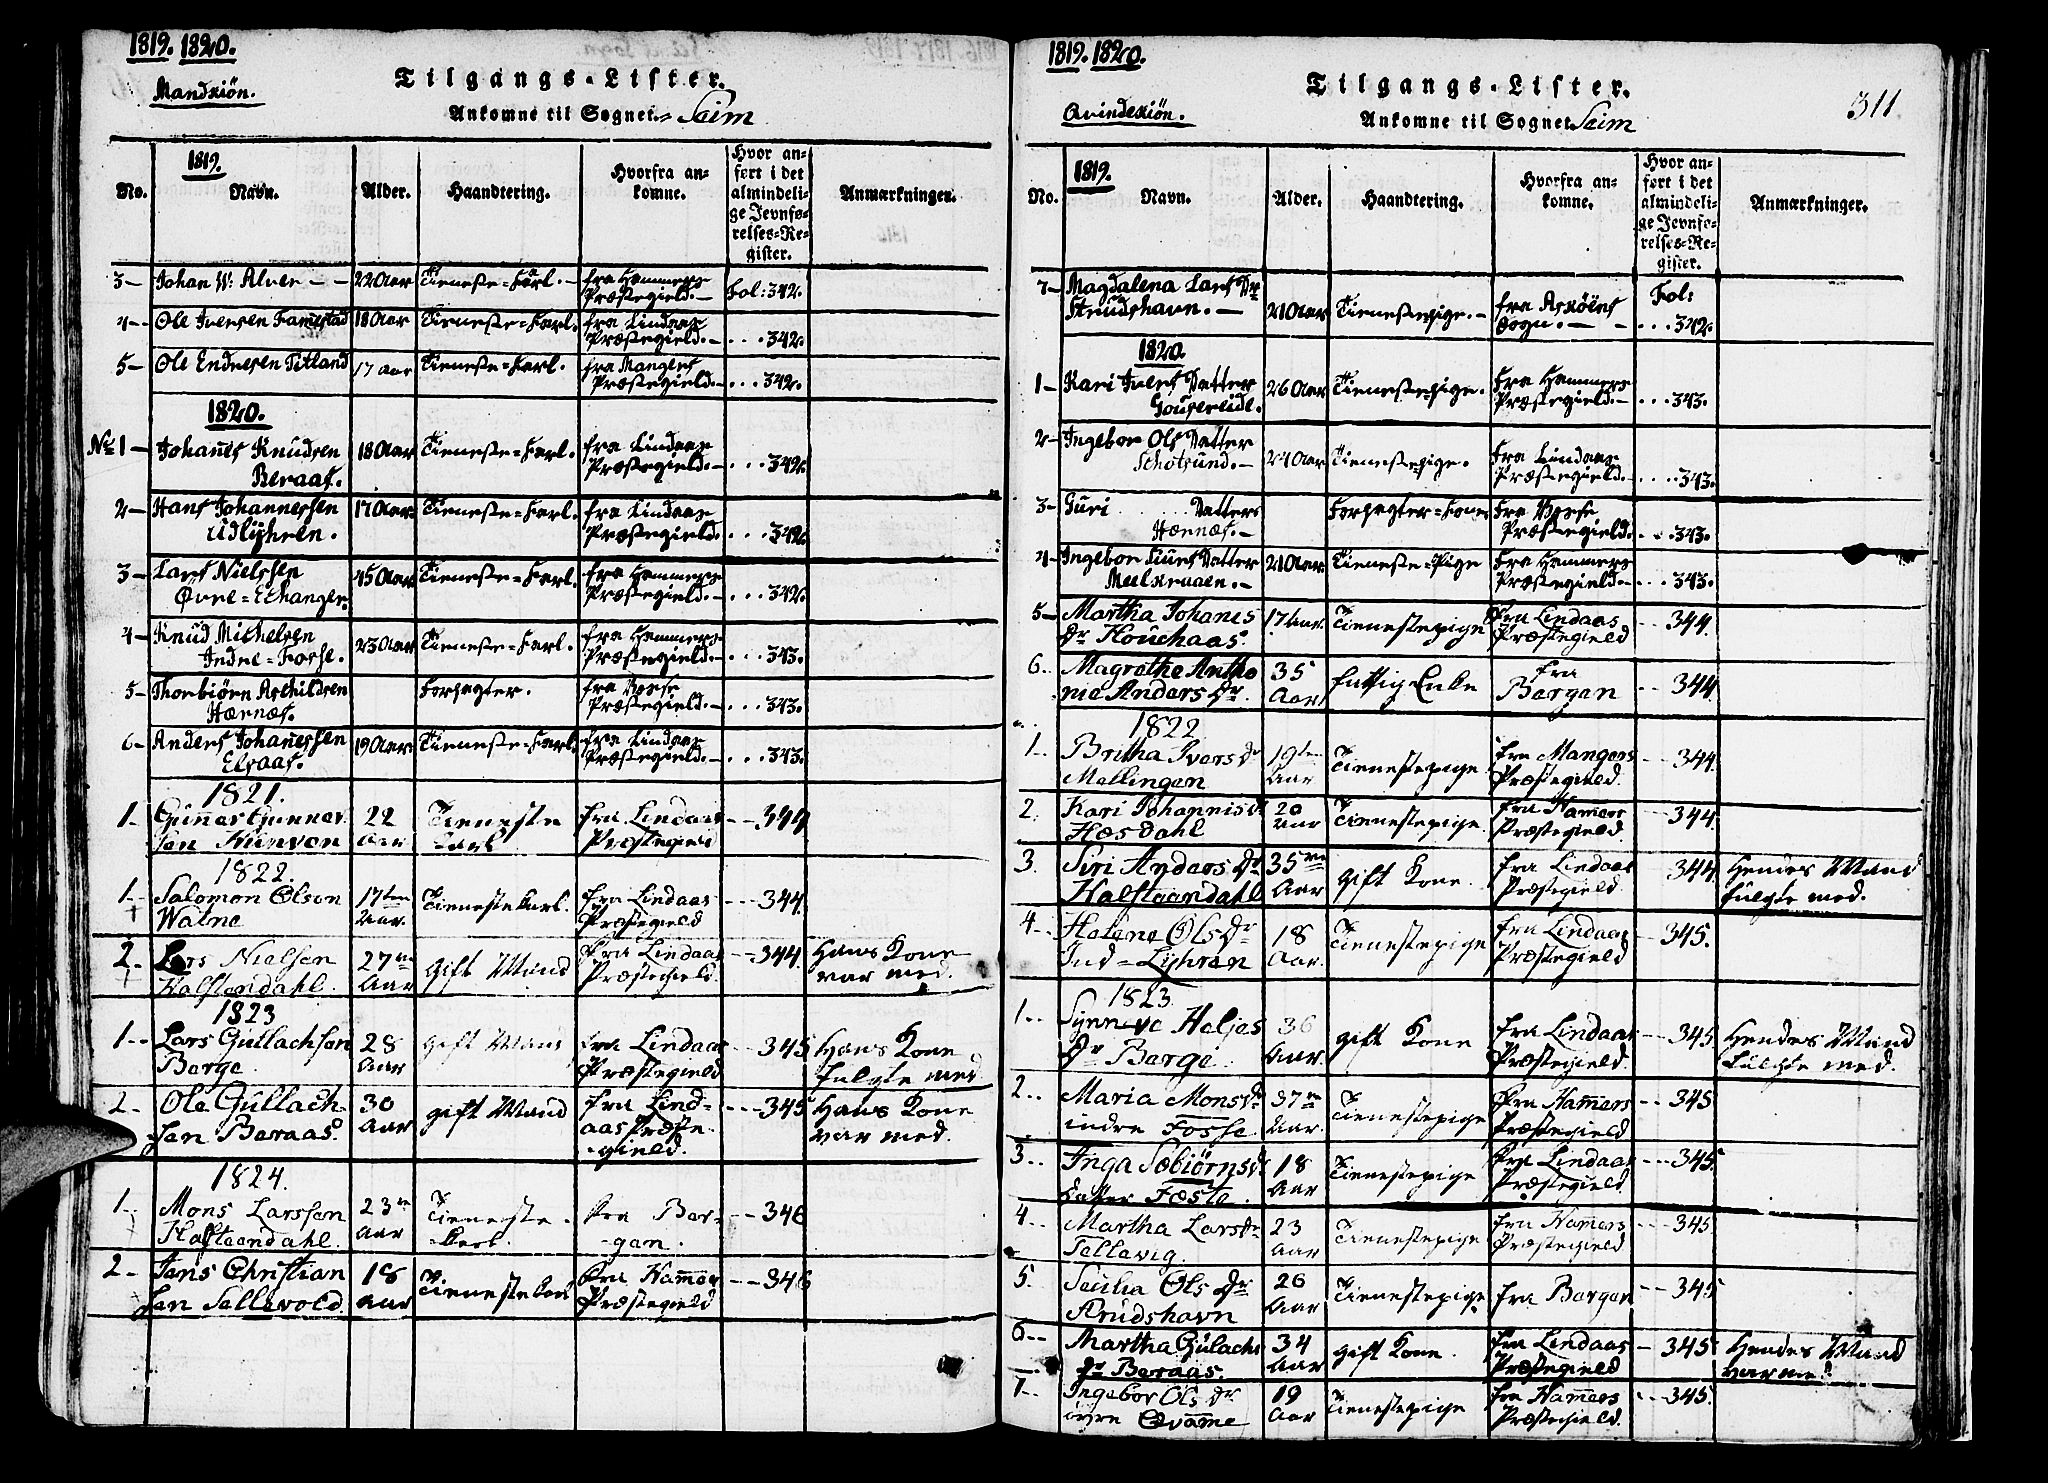 1819. 1820.
Mandkiön.
Tilgangs-Lister.
Ankomne til Sognet Seim
1819.
No. Navn. Alder. Haandtering. Hvorfra ankomne. Hvor anført i det almindelige Jevnførelses-Register. Anmærkninger.
3- Johan W: Alver - - 22 Aar Tieneste-Karl. - fra Hammers Præstegield. - Fol: 342.
4-- Ole Iversen Famestad 18 Aar Tieneste-Karl. fra Lindaas Præstegield. - ... 342.
5- Ole Endresen Titland 17 Aar Tieneste-Karl. fra Mangers Præstegield. - ... 342.
1820.
No 1- Johanes Knudsen Beraas. 18 Aar Tieneste-Karl. fra Lindaas Præstegield. - ... 342.
2- Hans Johannessen Udlyhren. 17 Aar Tieneste-Karl. fra Lindaas Præstegield. ... 342.
3- Lars Nielssen Øvre-Echanger. 45 Aar Tieneste-Karl. fra Hammers Præstegield. - ... 342.
4- Knud Michelsen Indre-Fosse. 23 Aar Tieneste-Karl. fra Hammers Præstegield. - ... 343.
5- Thorbiörn Aschildsen Hærnæs. Forpagter. fra Vosse Præstegield. - ... 343.
6- Anders Johanessen Elvaas. 19 Aar Tieneste-Karl. fra Lindaas Præstegield. - ... 343.
1821.
1- Gunnar Gunnarsen 22 Aar Tieneste Karl fra Lindaas Præstegield -- 344
1822.
1-- Salomon Olson Watne 17ten Aar. Tienestekarl. fra Lindaas Præstegield -- 344.
2. Lars Nielsen Halstendahl. 27de Aar gift Mand Fra Lindaas Præstegield. -- 344. Hans Kone var med.
1823
1-- Lars Gullachsen Barge. 28 Aar gift Mand fra Lindaas Præstegield -- 345 Hans Kone fulgte med
2- Ole Gullachsen Beraas. 30 Aar gift Mand fra Lindaas Præstegield. --- 345 Hans Kone var med.
1824.
1- Mons Larssen Halstaandahl. 23de Aar Tieneste-karl. fra Bergen. -- 346
2- Jens Christiansen Sellevold. 18 Aar Tienestekarl Fra Hammer Præstegield -- 346
1819. 1820.
Qvindekiön.
Tilgangs-Lister.
Ankomne til Sognet Seim
311
1819.
No. Navn. Alder. Haandtering. Hvorfra ankomne. Hvor anført i det almindelige Jevnførelses-Register. Anmærkninger.
7- Magdalena Lars Dr Knudshavn. - 21 Aar Tienestepige. - fra Askøens Sogn. - - Fol: ... 342.
1820.
1- Kari Ivers Datter 26 Aar Tienestepige. Fra Hammers Præstegield. - ... 343.
2- Ingebor Ols Datter Schotsund. - 24 Aar Tienestepige. Fra Lindaas Præstegield. - ... 343.
3- Guri ..... Datters Hærnæs. - Forpagter-Kones Fra Vosse Præstegield. ... 343.
4- Ingebor Siurs Datter Meelkraaen. - 21 Aar Tieneste-Pige Fra Hammers Præstegield. - ... 343.
5- Martha Johanes Dr Houchaas 17 Aar. Tienestepige fra Lindaas Præstegield -- 344.
6.. Magrethe Anthonie Anders Dr. 35 Aar fattig Enke fra Bergen -- 344
1822
1.. Britha Ivers Dr Mellingen 19ten Aar Tienestepige fra Mangers Præstegield. -- 344.
2. Kari Johannis Dr Hæsdahl 20 Aar Tienestepige. fra Hamers Præstegield. -- 344.
3. Siri Anders Dr Halstaandahl 35de Aar gift Kone. fra Lindaas Præstegield. 344. Hendes Mand fulgte med.
4- Helene Ols Dr Ind-Lyhren 18 Aar. Tienestepige fra Lindaas Præstegield -- 345.
1823.
1-- Synneve Heljes Dr Barge. 36 Aar. gift Kone fra Lindaas Præstegield -- 345 Hendes Mand fulgte med.
2.. Maria Mons Dr indre Fosse. 37de Aar. Tienestepige Fra Hamers Præstegield -- 345
3.. Inga Sebiörns Datter Fæste. 18 Aar Tienestepige Fra Lindaas Præstegield. --- 345.
4.. Martha Lars Dr Tellevig. 23 Aar Tienestepige fra Hamers Præstegield --- 345.
5. Secilia Ols Dr Knudshavn 26 Aar. Tienestepige fra Bergen --- 345
6-- Martha Gulachs Dr Beraas. 34 Aar gift Kone. fra Lindaas Præstegield - 345. Hendes Mand
7-- Ingebor Ols Dr øvre Qvame 19 Aar Tienestepige fra Hamers Præstegield. --- 345.